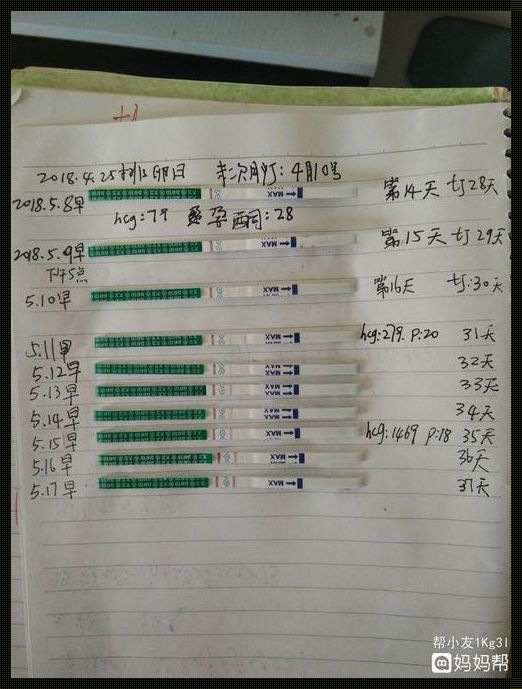 2018.4.25排卵日 末次月经：4月10号
2018.5.8早 MAX 第14天 tJ28天
hcg=79 孕酮：28
2018.5.9早 MAX 第15天 tJ29天
下午5点
5.10早 MAX 第16天 tJ：30天
5.11早 MAX hcg：279. P：20 31天
5.12早 MAX 32天
5.13早 MAX 33天
5.14早 MAX 34天
5.15早 MAX hcg：1469 P：18 35天
5.16早 MAX 36天
5.17早 MAX 37天
帮小友1Kg3l
妈妈帮